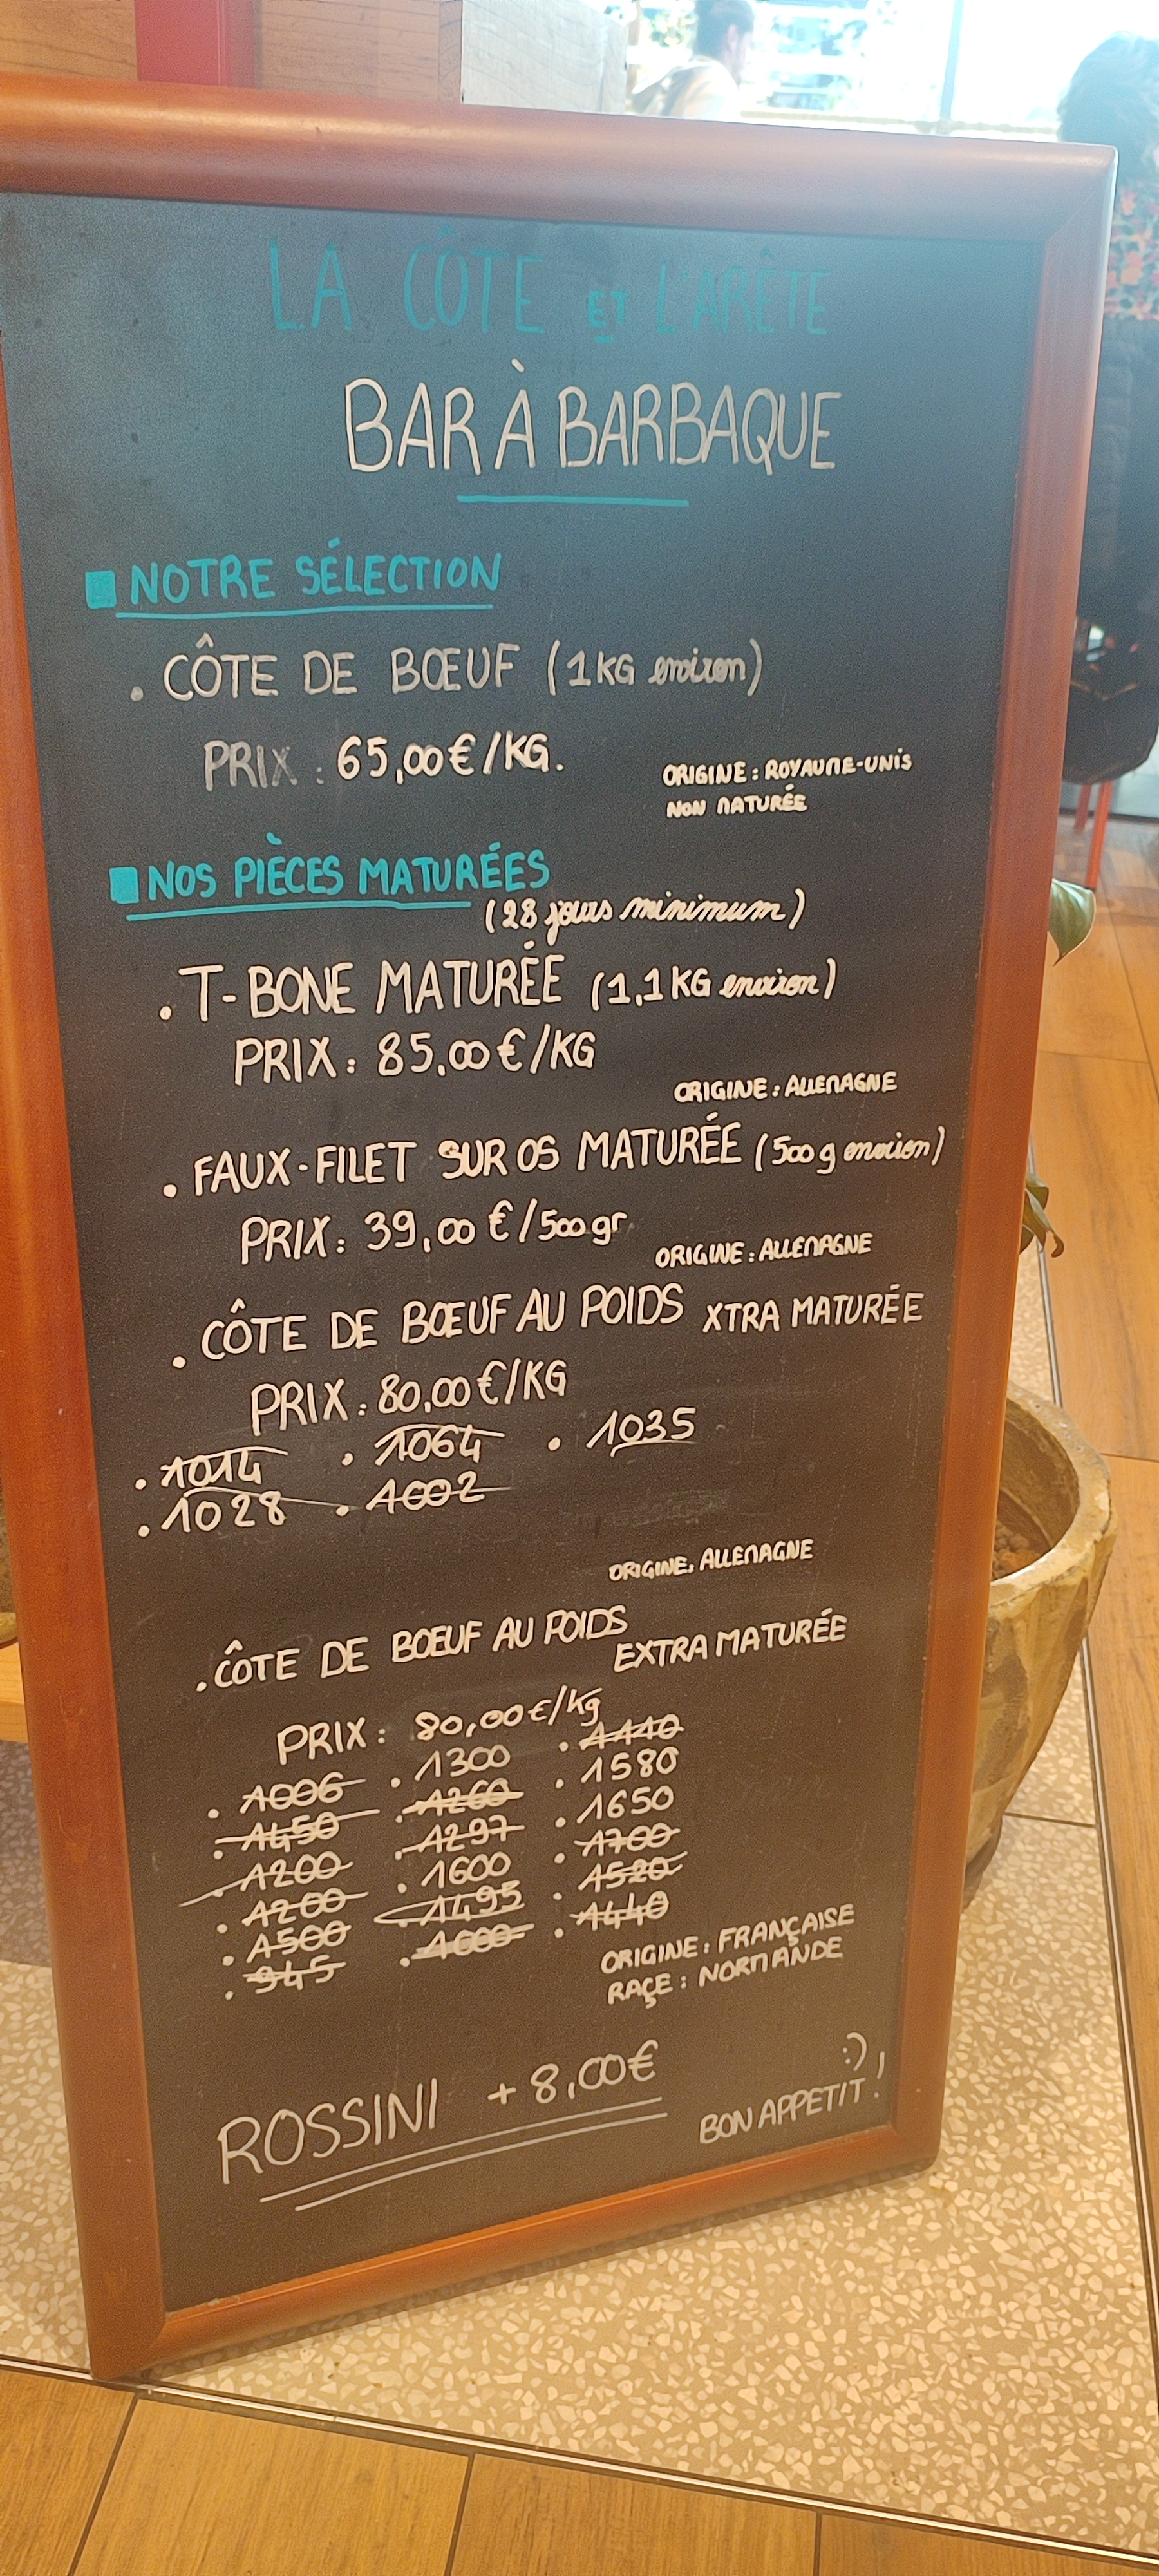 LA CÔTE ET L'ARÊTE
BAR À BARBAQUE
NOTRE SÉLECTION
. CÔTE DE BŒUF (1KG environ)
PRIX : 65,00€/KG.
ORIGINE : ROYAUME-UNIS
NON MATURÉE
NOS PIÈCES MATURÉES
(28 jours minimum)
. T-BONE MATURÉE (1,1KG environ)
PRIX : 85,00€/KG
ORIGINE : ALLEMAGNE
. FAUX-FILET SUR OS MATURÉE (500g environ)
PRIX : 39,00€/500gr
ORIGINE : ALLEMAGNE
. CÔTE DE BŒUF AU POIDS XTRA MATURÉE
PRIX : 80,00€/KG
. 1014 . 1064 . 1035
. 1028 . 1002
ORIGINE : ALLEMAGNE
. CÔTE DE BŒUF AU POIDS
EXTRA MATURÉE
PRIX : 80,00€/kg
. 1006 . 1300 . 1440
. 1450 . 1260 . 1580
. 1200 . 1297 . 1650
. 1200 . 1600 . 1700
. 1500 . 1495 . 1520
. 945 . 1600 . 1440
ORIGINE : FRANÇAISE
RAÇE : NORMANDE
ROSSINI + 8,00€
:),
BON APPETIT !